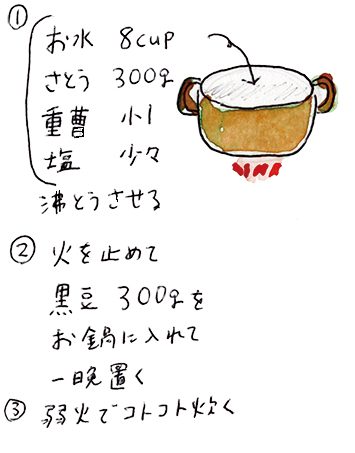 ①
お水 8cup
さとう 300g
重曹 小1
塩 少々
沸とうさせる
② 火を止めて
黒豆 300gを
お鍋に入れて
一晩置く
③ 弱火でコトコト炊く